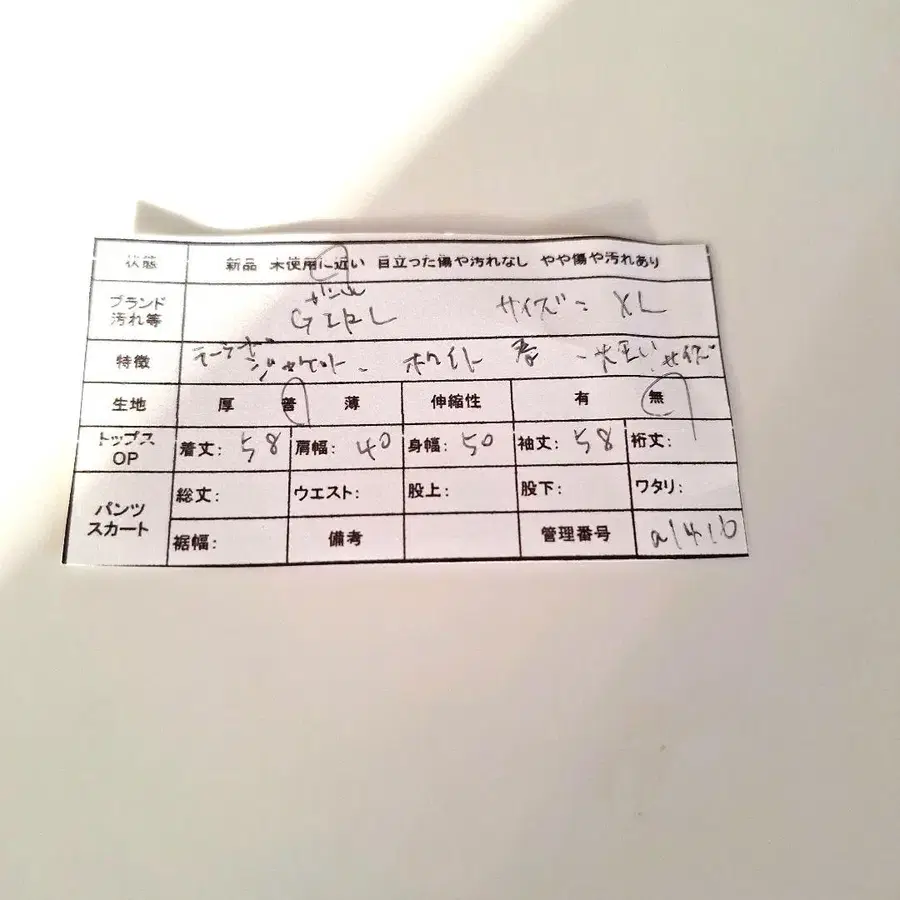 状態 新品 未使用に近い 目立った傷や汚れなし やや傷や汚れあり
ガール
ブランド GIRL サイズ: XL
汚れ等
特徴 テーラード
ジャケット ホワイト 春 大きいサイズ
生地 厚 普 薄 伸縮性 有 無
トップス 着丈: 58 肩幅: 40 身幅: 50 袖丈: 58 裄丈:
OP
総丈: ウエスト: 股上: 股下: ワタリ:
パンツ
スカート
裾幅: 備考 管理番号 a1416